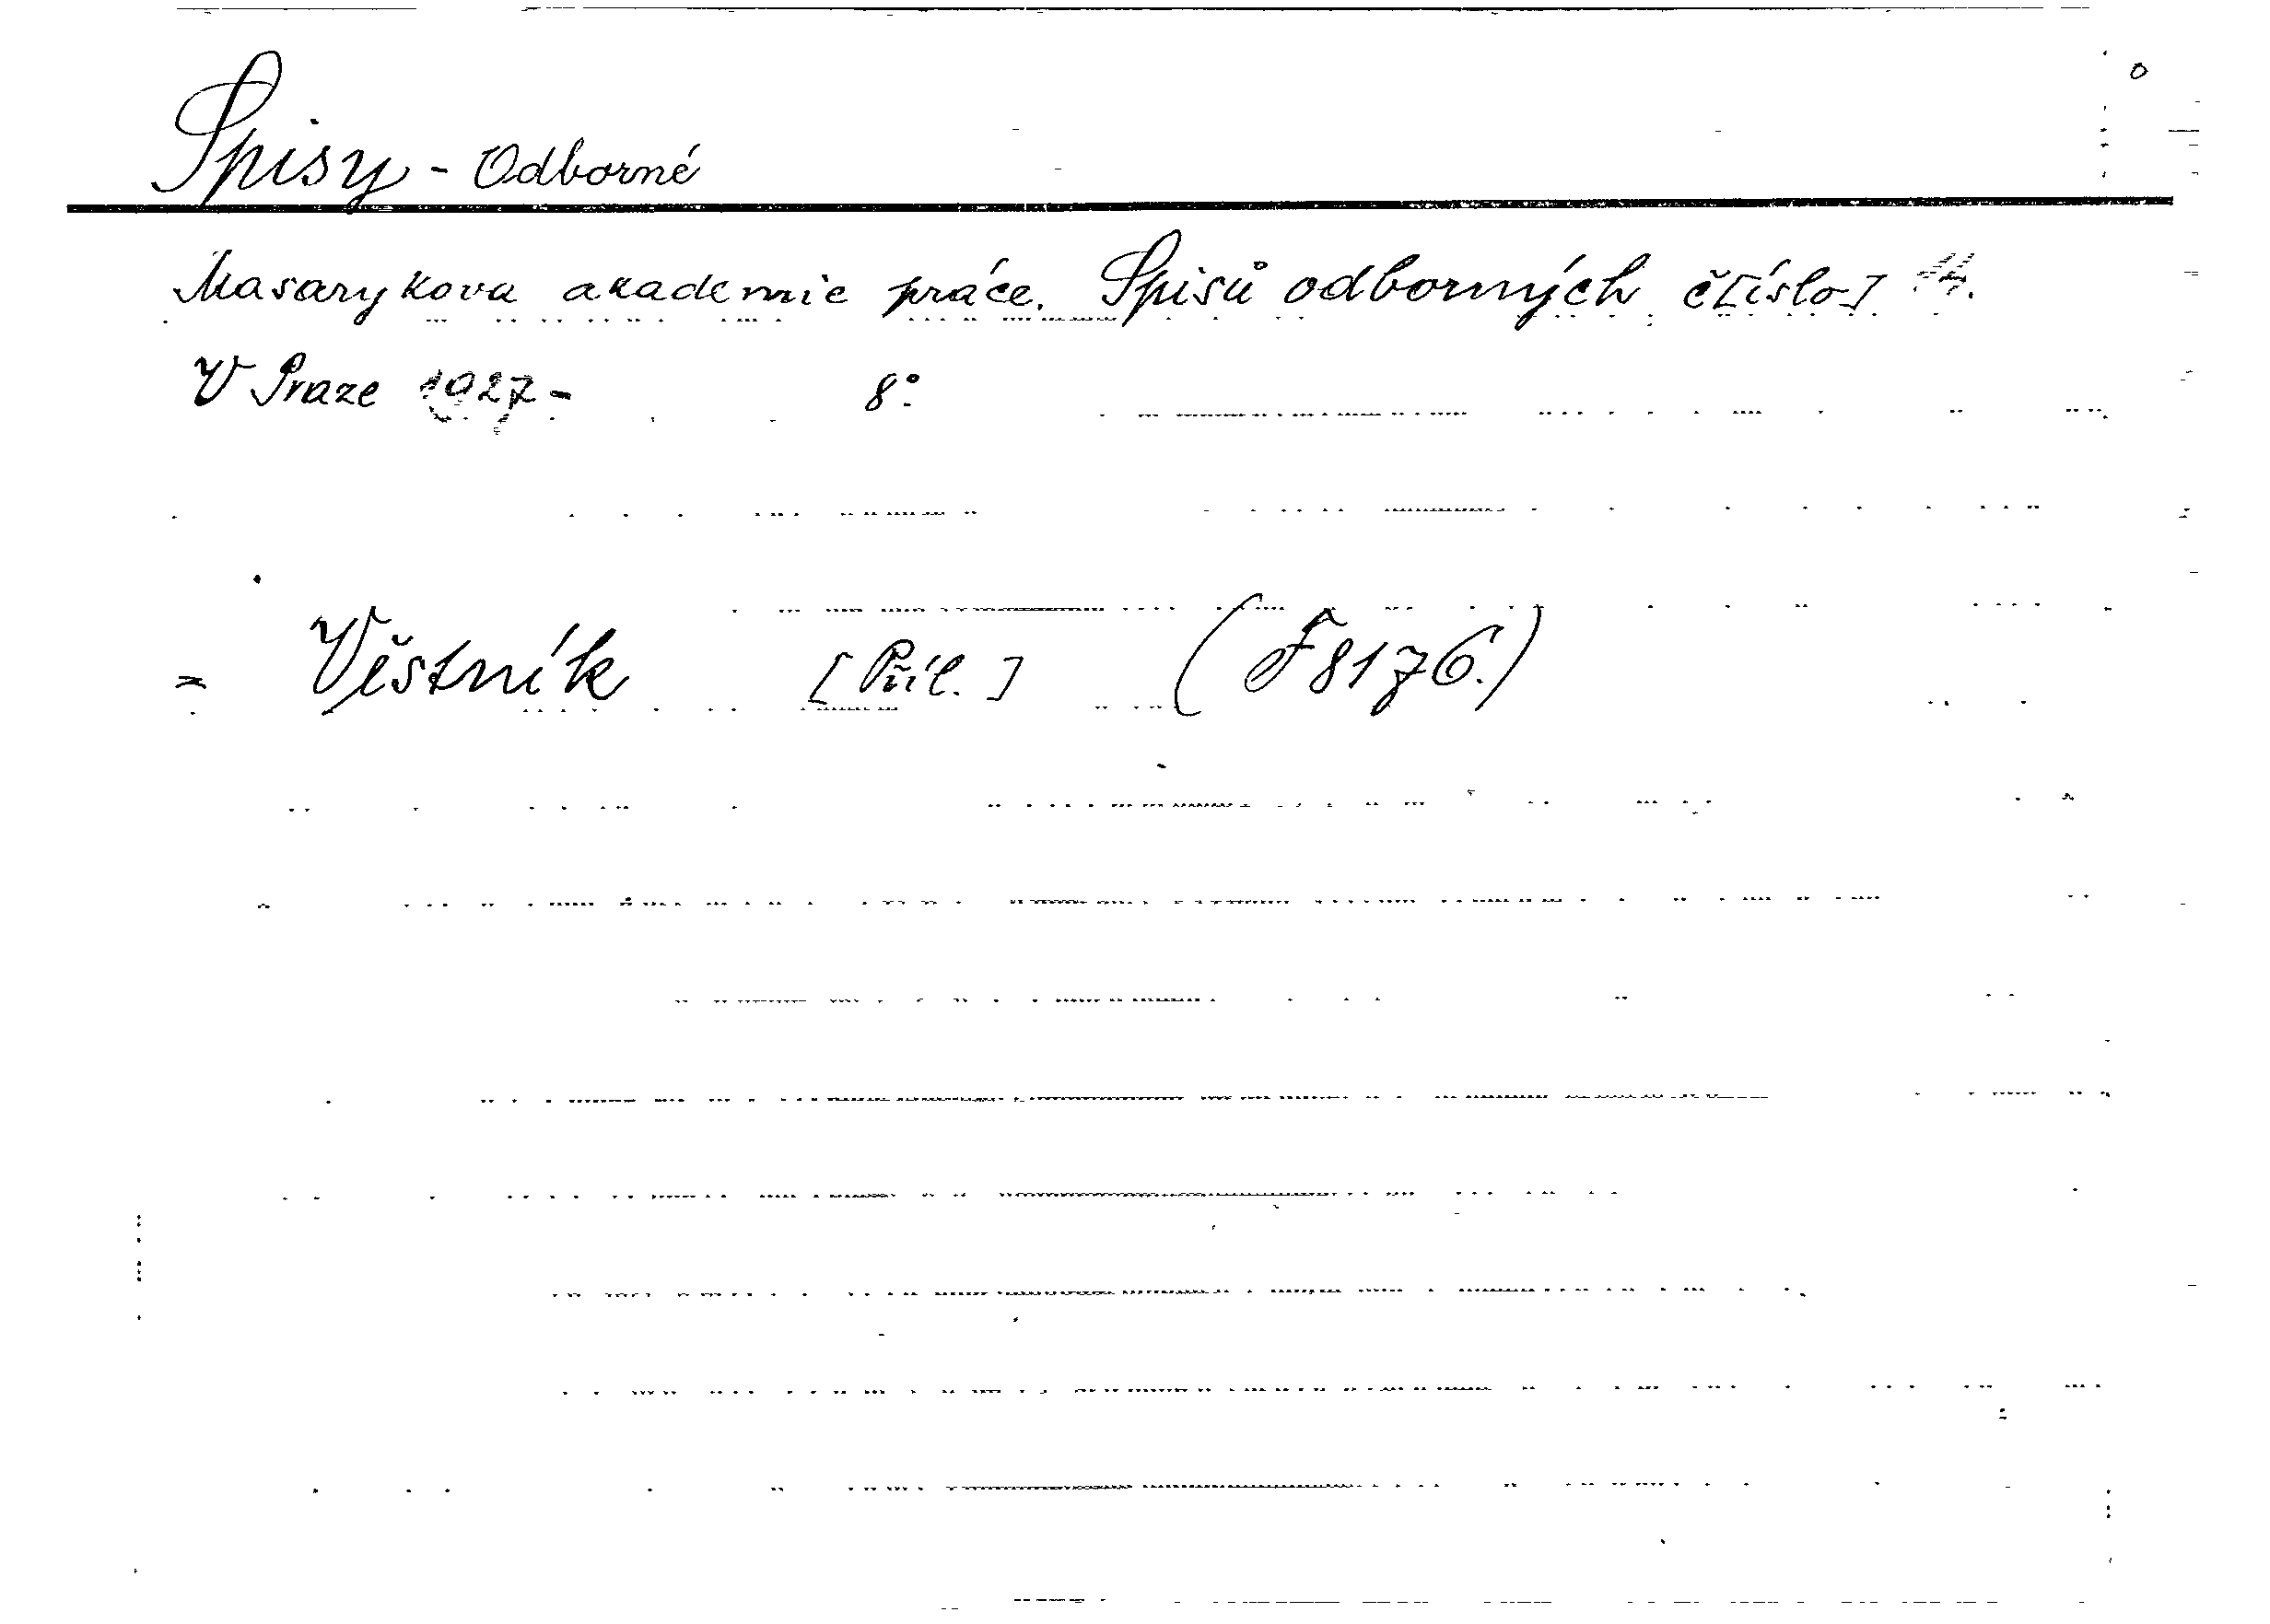 Spisy - Odborné
Masarykova akademie práce. Spisů odborných č[íslo]
V Praze 1927 - 8°
= Věstník [Příl.] (F 8176.)